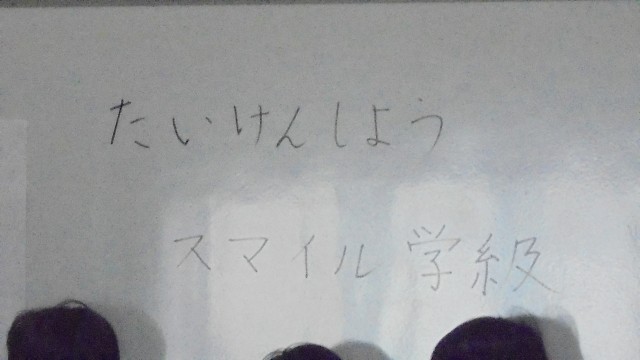 たいけんしよう
スマイル学級